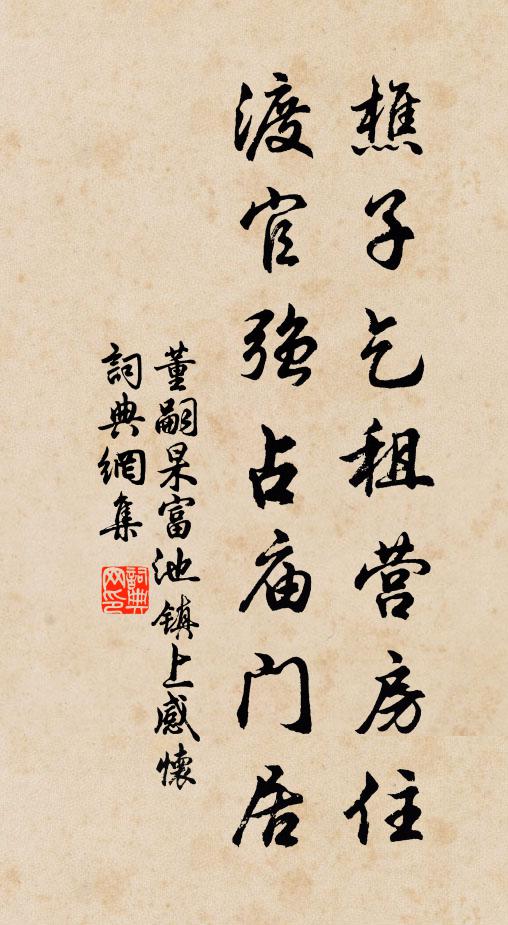 樵子乞租营房住
渡官强占庙门居
董嗣杲富池镇上感懷
詞典網集
詞典
网印